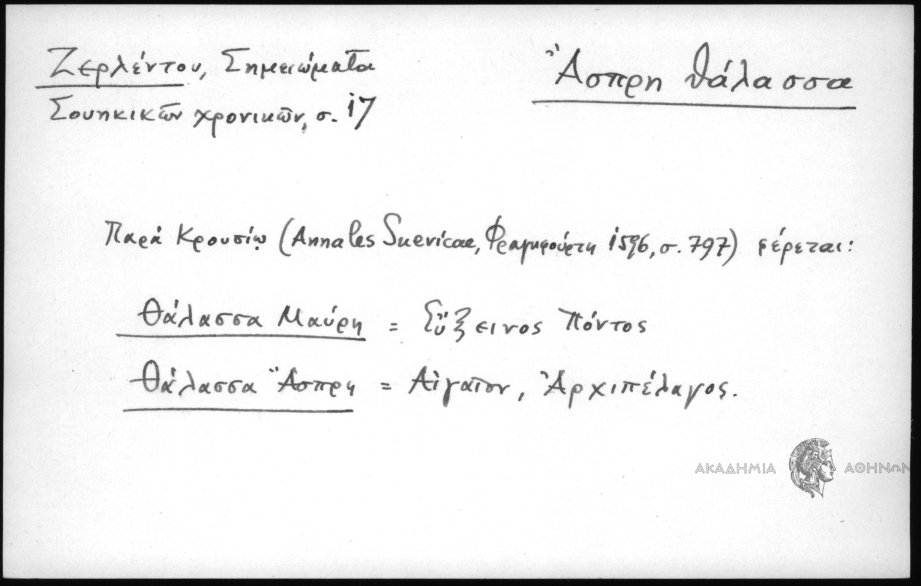 Ζερλέντου, Σημειώματα
Σουηκικῶν χρονικῶν, σ. 17
Ἄσπρη θάλασσα
Παρά Κρουσίῳ (Annales Suevicae, Φραγκφούρτη 1596, σ. 797) φέρεται:
Θάλασσα Μαύρη = Εὔξεινος Πόντος
Θάλασσα Ἄσπρη = Αἰγαῖον, Ἀρχιπέλαγος.
ΑΚΑΔΗΜΙΑ ΑΘΗΝΩΝ